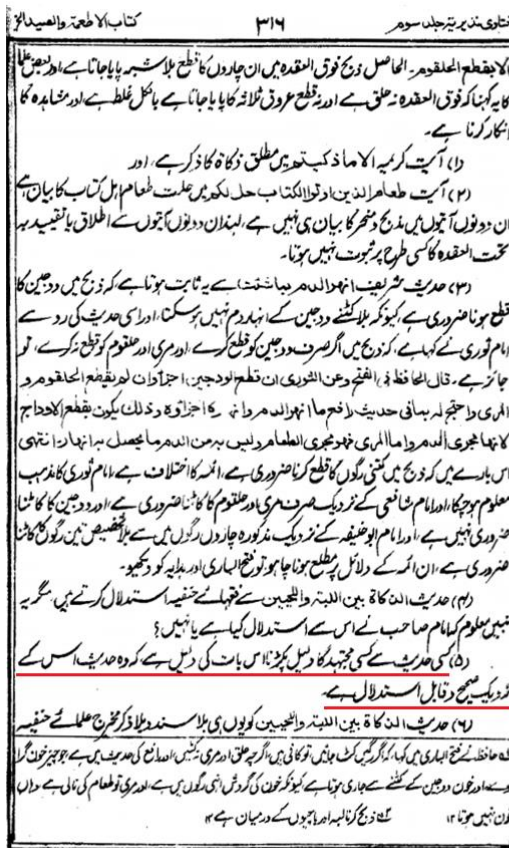 فتاوی نذیریہ جلد سوم ۳۱۶ کتاب الاطعمۃ والصید الخ
الا بقطع الحلقوم۔ الحاصل ذبح فوق العقدہ میں ان چاروں کا قطع بلا شبہ پایا جاتا ہے، اور بعض علما
کا یہ کہنا کہ فوق العقدہ نہ حلق ہے اور نہ قطع عروق ثلاثہ کا پایا جاتا ہے بالکل غلط ہے، اور مشاہدہ کا
انکار کرنا ہے۔
(۱) آیت کریمہ الا ما ذکیتم میں مطلق ذکاۃ کا ذکر ہے، اور
(۲) آیت طعام الذین اوتوا الکتاب حل لکم میں حلت طعام اہل کتاب کا بیان ہے
ان دونوں آیتوں میں مذبح و منحر کا بیان ہی نہیں ہے، لہٰذا ان دونوں آیتوں سے اطلاق یا تقیید بہ
تحت العقدہ کا کسی طرح پر ثبوت نہیں ہوتا۔
(۳) حدیث شریف انہر الدم بما شئت سے یہ ثابت ہوتا ہے، کہ ذبح میں ودجین کا
قطع ہونا ضروری ہے، کیونکہ بلا کٹنے ودجین کے انہار دم نہیں ہو سکتا، اور اسی حدیث کی رو سے
امام ثوری نے کہا ہے، کہ ذبح میں اگر صرف ودجین کو قطع کرے، اور مری اور حلقوم کو قطع نہ کرے، تو
جائز ہے۔ قال الحافظ فی الفتح وعن الثوری ان قطع الودجین اجزأ وان لم یقطع الحلقوم و
المری واحتج لہ بما فی حدیث رافع ما انہر الدم وانہارہ اجراؤہ وذلک یکون بقطع الاوداج
لانہا مجری الدم واما المری فہو مجری الطعام ولیس بہ من الدم ما یحصل بہ انہار۔ انتہی
اس بارے میں کہ ذبح میں کتنی رگوں کا قطع کرنا ضروری ہے، ائمہ کا اختلاف ہے، امام ثوری کا مذہب
معلوم ہو چکا، اور امام شافعی کے نزدیک صرف مری اور حلقوم کا کاٹنا ضروری ہے، اور ودجین کا کاٹنا
ضروری نہیں ہے، اور امام ابوحنیفہ کے نزدیک مذکورہ چاروں رگوں میں سے بلا تخصیص تین رگوں کا کاٹنا
ضروری ہے، ان ائمہ کے دلائل پر مطلع ہونا چاہو تو فتح الباری اور ہدایہ کو دیکھو۔
(۴) حدیث الذکاۃ بین اللبۃ واللحیین سے فقہائے حنفیہ استدلال کرتے ہیں، مگر یہ
نہیں معلوم کہ امام صاحب نے اس سے استدلال کیا ہے یا نہیں؟
(۵) کسی حدیث سے کسی مجتہد کا دلیل پکڑنا اس بات کی دلیل ہے، کہ وہ حدیث اس کے
نزدیک صحیح و قابل استدلال ہے۔
(۶) حدیث الذکاۃ بین اللبۃ واللحیین کو یوں ہی بلا سند و بلا ذکر مخرج علمائے حنفیہ
حافظ نے فتح الباری میں کہا، کہ اگر رگیں کٹ جائیں تو کافی ہیں، اگرچہ حلق اور مری نہ کٹیں، اور رافع کی حدیث میں ہے، جو چیز خون گرا
دے، اور خون ودجین کے کٹنے سے جاری ہوتا ہے کیونکہ خون کی گردش انہی رگوں میں ہے، اور مری تو طعام کی نالی ہے، وہاں
خون نہیں ہوتا ۱۲ ذبح کرنا لبہ اور باچھوں کے درمیان ہے ۱۲